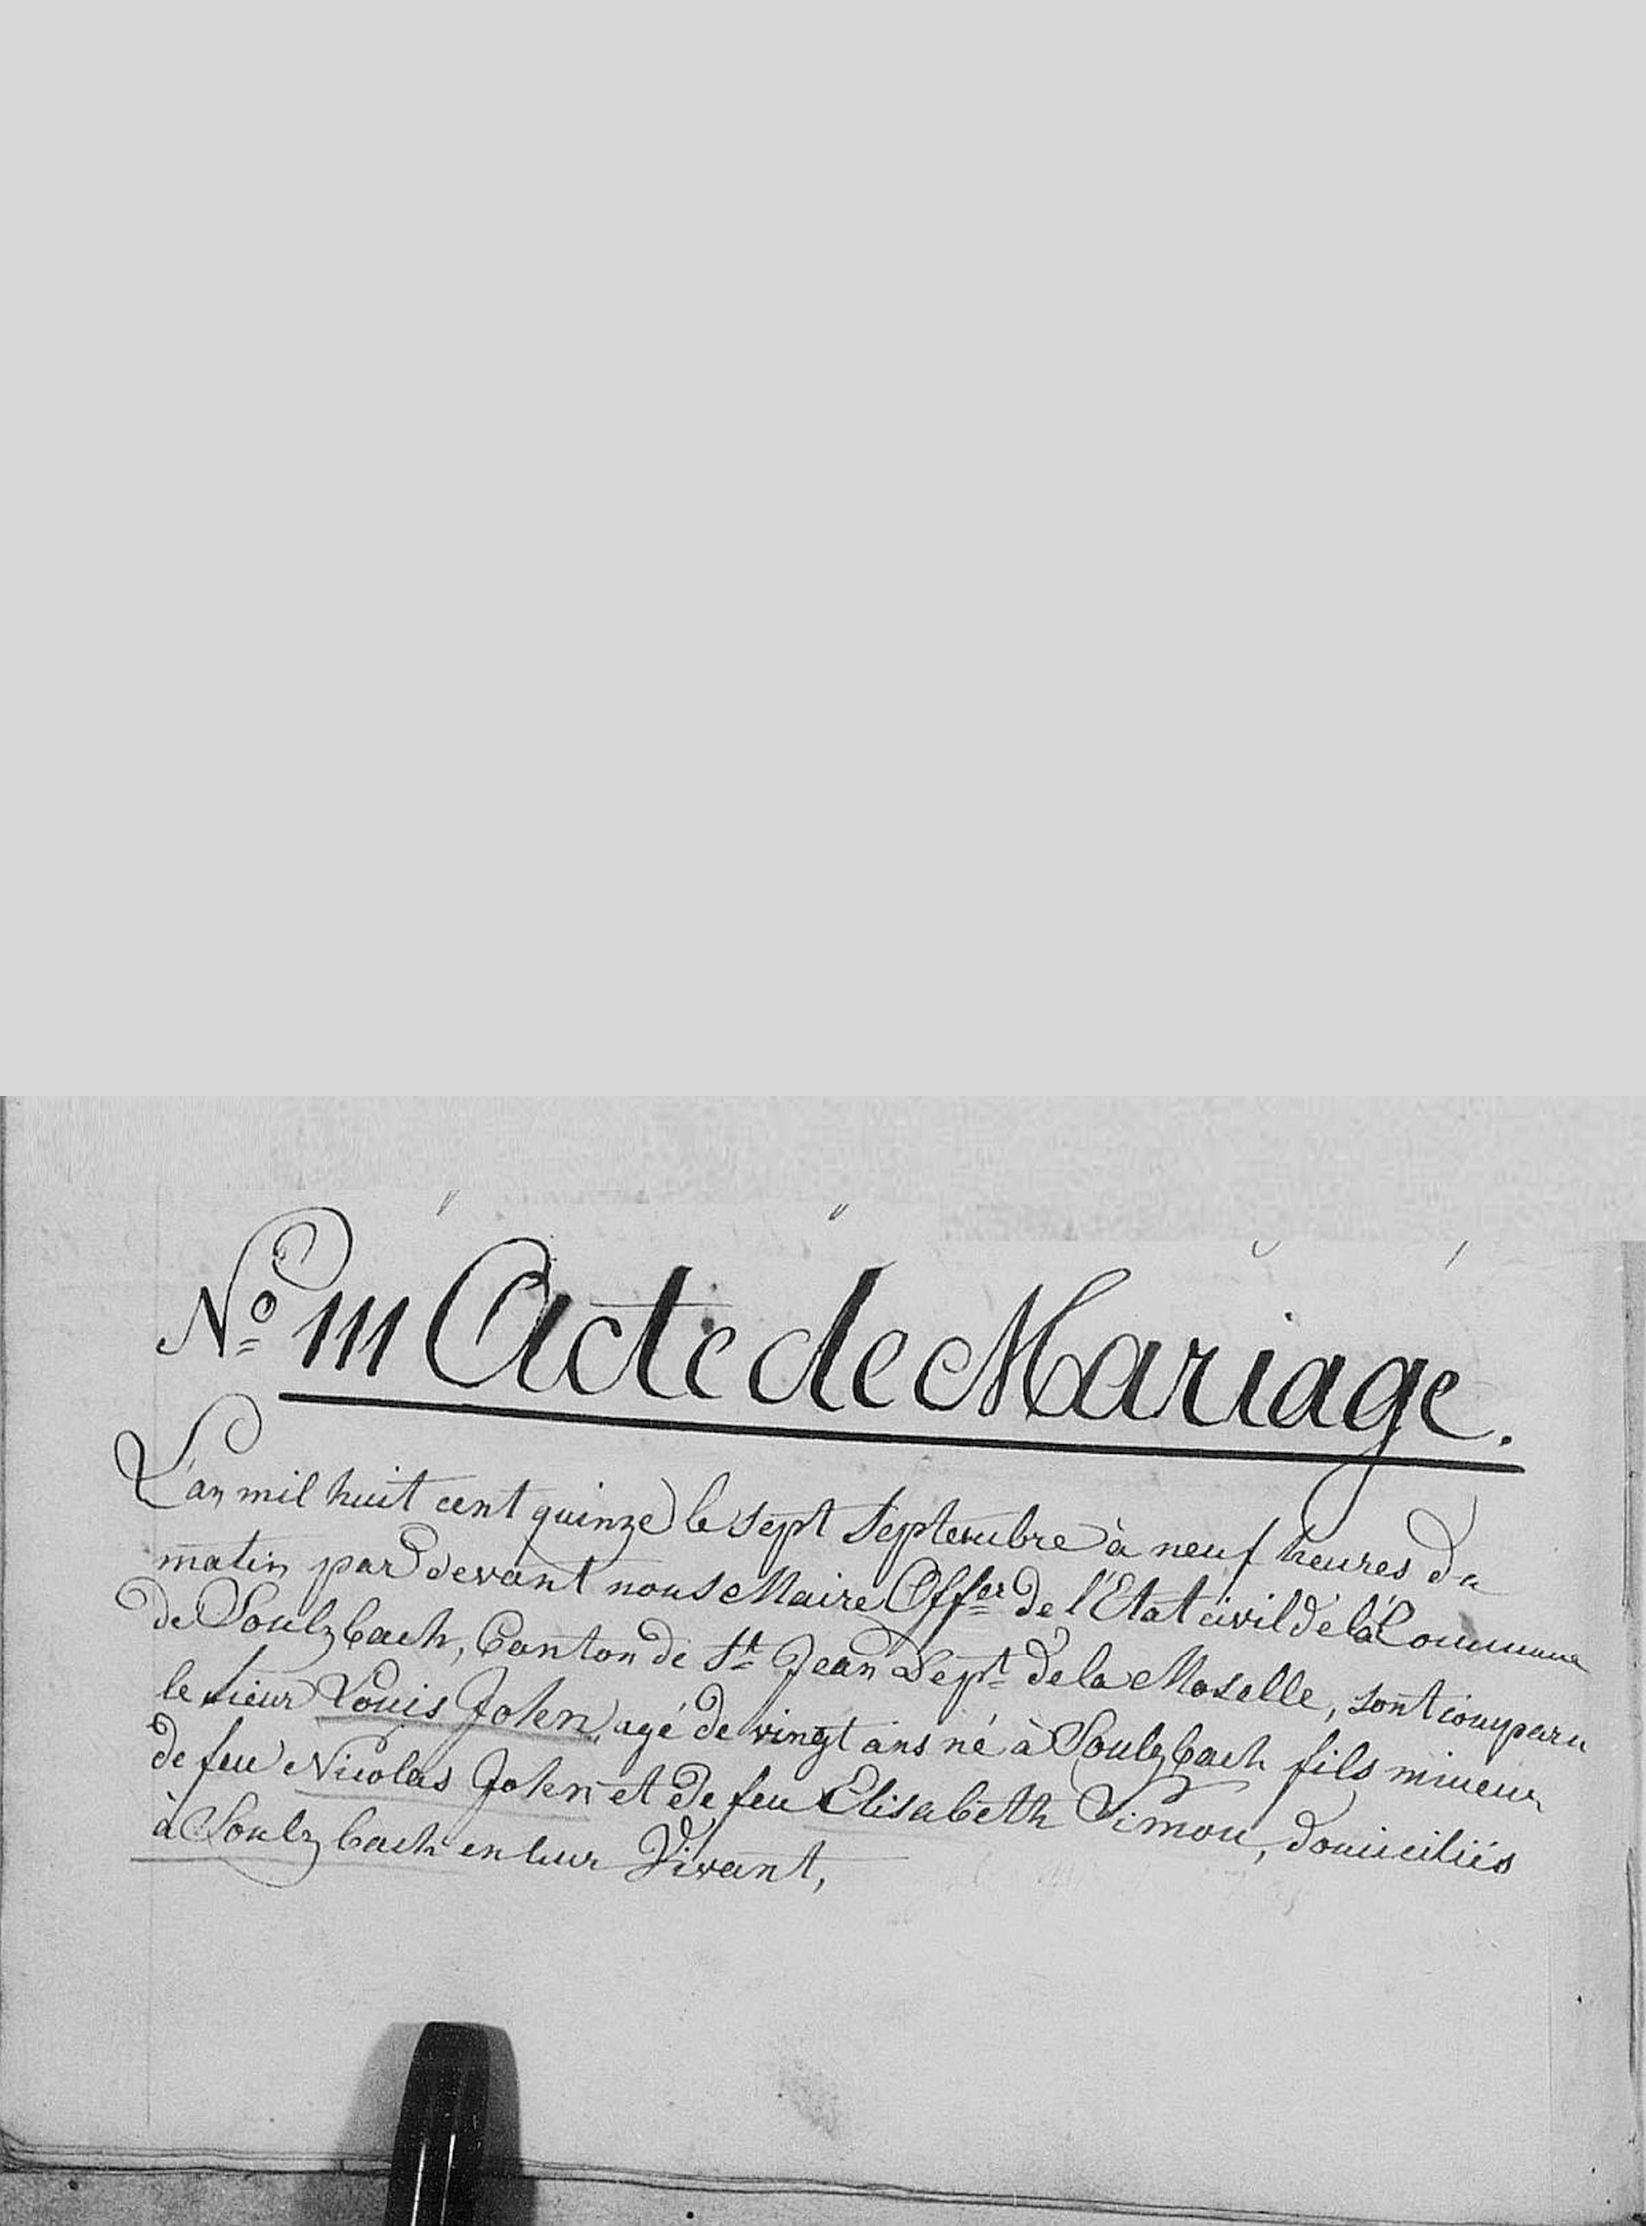 No 111 Acte de Mariage.
L'an mil huit cent quinze le sept Septembre à neuf heures du
matin par devant nous Maire Offer de l'Etat civil de la Commune
de Soulzbach, Canton de St Jean Dept de la Moselle, sont comparu
le sieur Louis John, agé de vingt ans né à Soulzbach fils mineur
de feu Nicolas John et de feu Elisabeth Simon, domiciliés
à Soulzbach en leur Vivant,